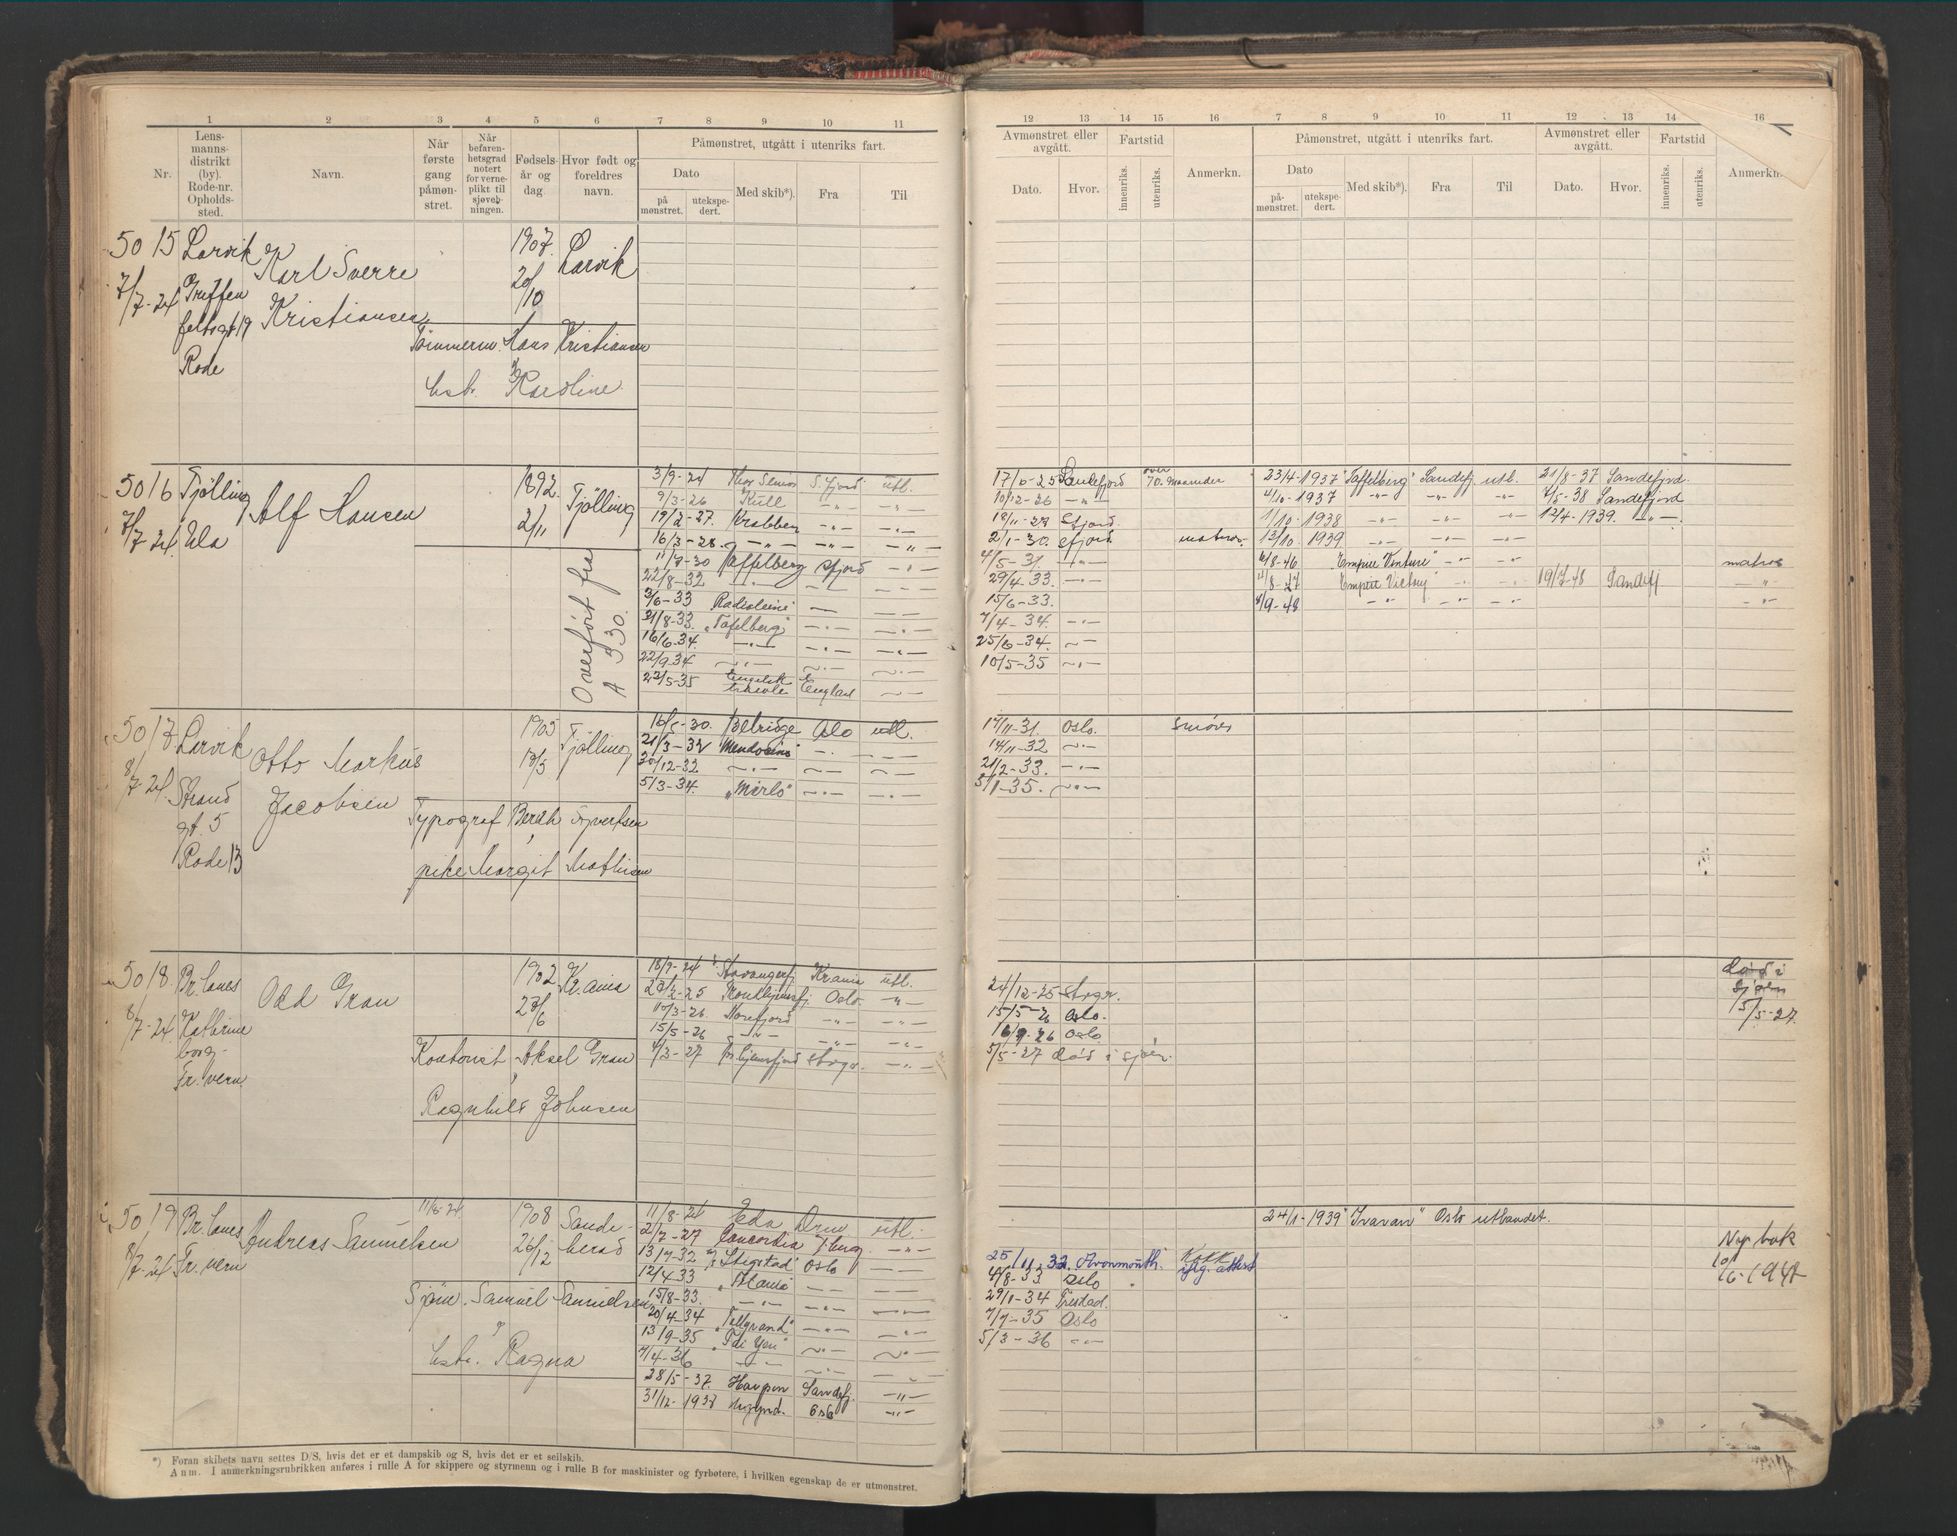 1 2 3 4 5 6 7 8 9 10 11
Nr.
Lens-
manns-
distrikt
(by).
Rode-nr.
Opholds-
sted.
Navn.
Når
første
gang
påmøn-
stret.
Når
befaren-
hetsgrad
notert
for verne-
plikt til
sjøveb-
ningen.
Fødsels-
år og
dag.
Hvor født og
foreldres
navn.
Påmønstret, utgått i utenriks fart.
Dato
på
mønstret.
utekspe-
dert.
Med skib*).
Fra
Til
12 13 14 15 16 7 8 9 10 11 12 13 14 16
Avmønstret eller
avgått.
Dato. Hvor.
Fartstid
innenriks.
utenriks.
Anmerkn.
Påmønstret, utgått i utenriks fart.
Dato
på-
mønstret.
utekspe-
dert.
Med skib*).
Fra
Til
Avmønstret eller
avgått.
Dato. Hvor.
Fartstid
innenriks.
utenriks.
Anmerkn.
5015 Larvik Karl Sverre 1907 Larvik
7/7-24 Griffen 20/10
feltsgt 19 Kristiansen
Rode
Tømmerm. Hans Kristiansen
hstr. Karoline
5016 Tjølling Alf Hansen 1892 Tjølling
7/7 24 Ula 2/11
Overført fra
A 330.
3/9-24 S.fjord utl.
9/3-26 Kull -"- -"-
19/2-27. Krabben -"- -"-
16/3-28. -"- -"- -"-
11/7-30 Taffelberg Sfjord -"-
22/8-32 -"-
3/6-33
31/8-33. "Tafelberg" -"- -"-
16/6-34. -"- -"- -"-
22/9 34 -"- -"- -"-
22/5-35 Engelsk England -"-
17/6-25 Sandefjord over 70. Maaneder
10/12-26 -"-
Sfjord.
2/1-30. Sfjord matros.
4/5-31. -"-
29/4-33. -"-
15/6-33.
7/4-34. -"-
25/6-34. -"-
10/5-35 -"-
23/4-1937 "Taffelberg" Sandefj. utl. 21/8-37 Sandefjord.
4/10-1937 -"- -"- -"- 7/5-38 Sandefjord
1/10-1938 -"- -"- -"- 12/4-1939. -"-
13/10. 1939 -"- -"- -"-
6/8-46 "Empire Venture" -"- -"- matros
"Empire Victory" -"- -"- 19/7-48 Sandefj -"-
8/9-48 -"- -"- -"- -"-
5017 Larvik Otto Markus 1905 Tjølling
8/7-24. Strand Jacobsen 13/5
gt. 5
Rode 13
Typograf Berth Syvertsen
pike Margit Mathisen
Belridge Oslo utl.
21/3-32 "Mendocino" -"- -"-
30/12-32 -"- -"- -"-
5/3-34. "Mirlo" -"- -"-
17/11-31. Oslo. smører
14/11-32 -"-
21/2-33. -"-
5/1-35. -"-
5018 Br.lanes Odd Gran 1902 Kr.ania
8/7-24. Katrine 28/6
borg-
Fr.vern.
Kontorist Aksel Gran
Ragnhild Johnsen
18/9-24 Stavangerfj Krania utl.
Oslo -"-
10/3-26 Norefjord -"- -"-
15/5-26 -"- -"- -"-
4/3-27
24/12-25
15/5-26 Oslo.
Oslo
5/5-27 død i sjøen.
død i
sjøen
5/5-27.
5019 Br.lanes Andreas Samuelsen 11/6-24. 1908 Sande-
8/7-24 Fr.vern 26/12 herad
Sjøm. Samuel Samuelsen
hstr. Ragna
11/8-24 Eda Drm utl.
2/7-27 Concordia Tbrg. -"-
13/7-32 "Stigstad" Oslo -"-
12/4-33 -"- -"-
15/8-33. -"- -"- -"-
20/4-34 -"- -"-
13/9-35 -"- -"-
7/4-36 -"- -"- -"-
28/5-37. Sandefj. -"-
Oslo -"-
25/11 32. Avonmouth. Kokk iflg. attest
4/8-33 Oslo
29/1-34
7/7-35 Oslo
5/3-36 -"-
24/1-1939 Oslo utlandet.
Ny bok
10/6-1947
*) Foran skibets navn settes D/S, hvis det er et dampskib og S, hvis det er et seilskib.
Anm. I anmerkningsrubrikken anføres i rulle A for skippere og styrmenn og i rulle B for maskinister og fyrbøtere, i hvilken egenskap de er utmønstret.